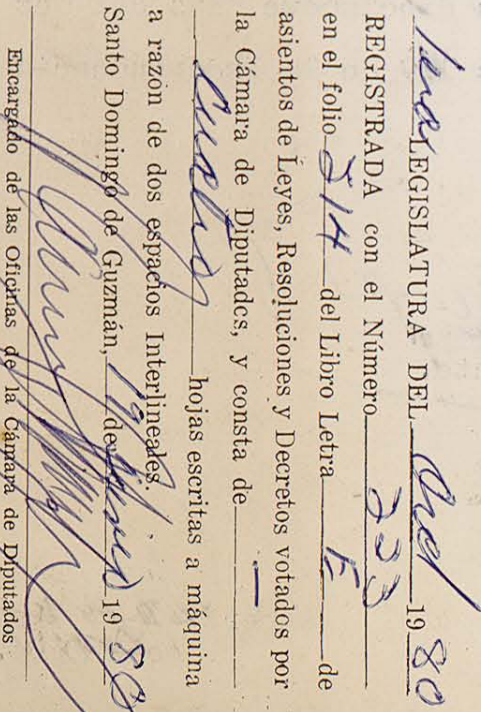 1era LEGISLATURA DEL Ord 1980
REGISTRADA con el Número 333
en el folio 314 del Libro Letra E de
asientos de Leyes, Resoluciones y Decretos votados por
la Cámara de Diputados, y consta de
cuatro hojas escritas a máquina
a razón de dos espacios Interlineales.
Santo Domingo de Guzmán, 19 de 1980
Encargado de las Oficinas de la Cámara de Diputados